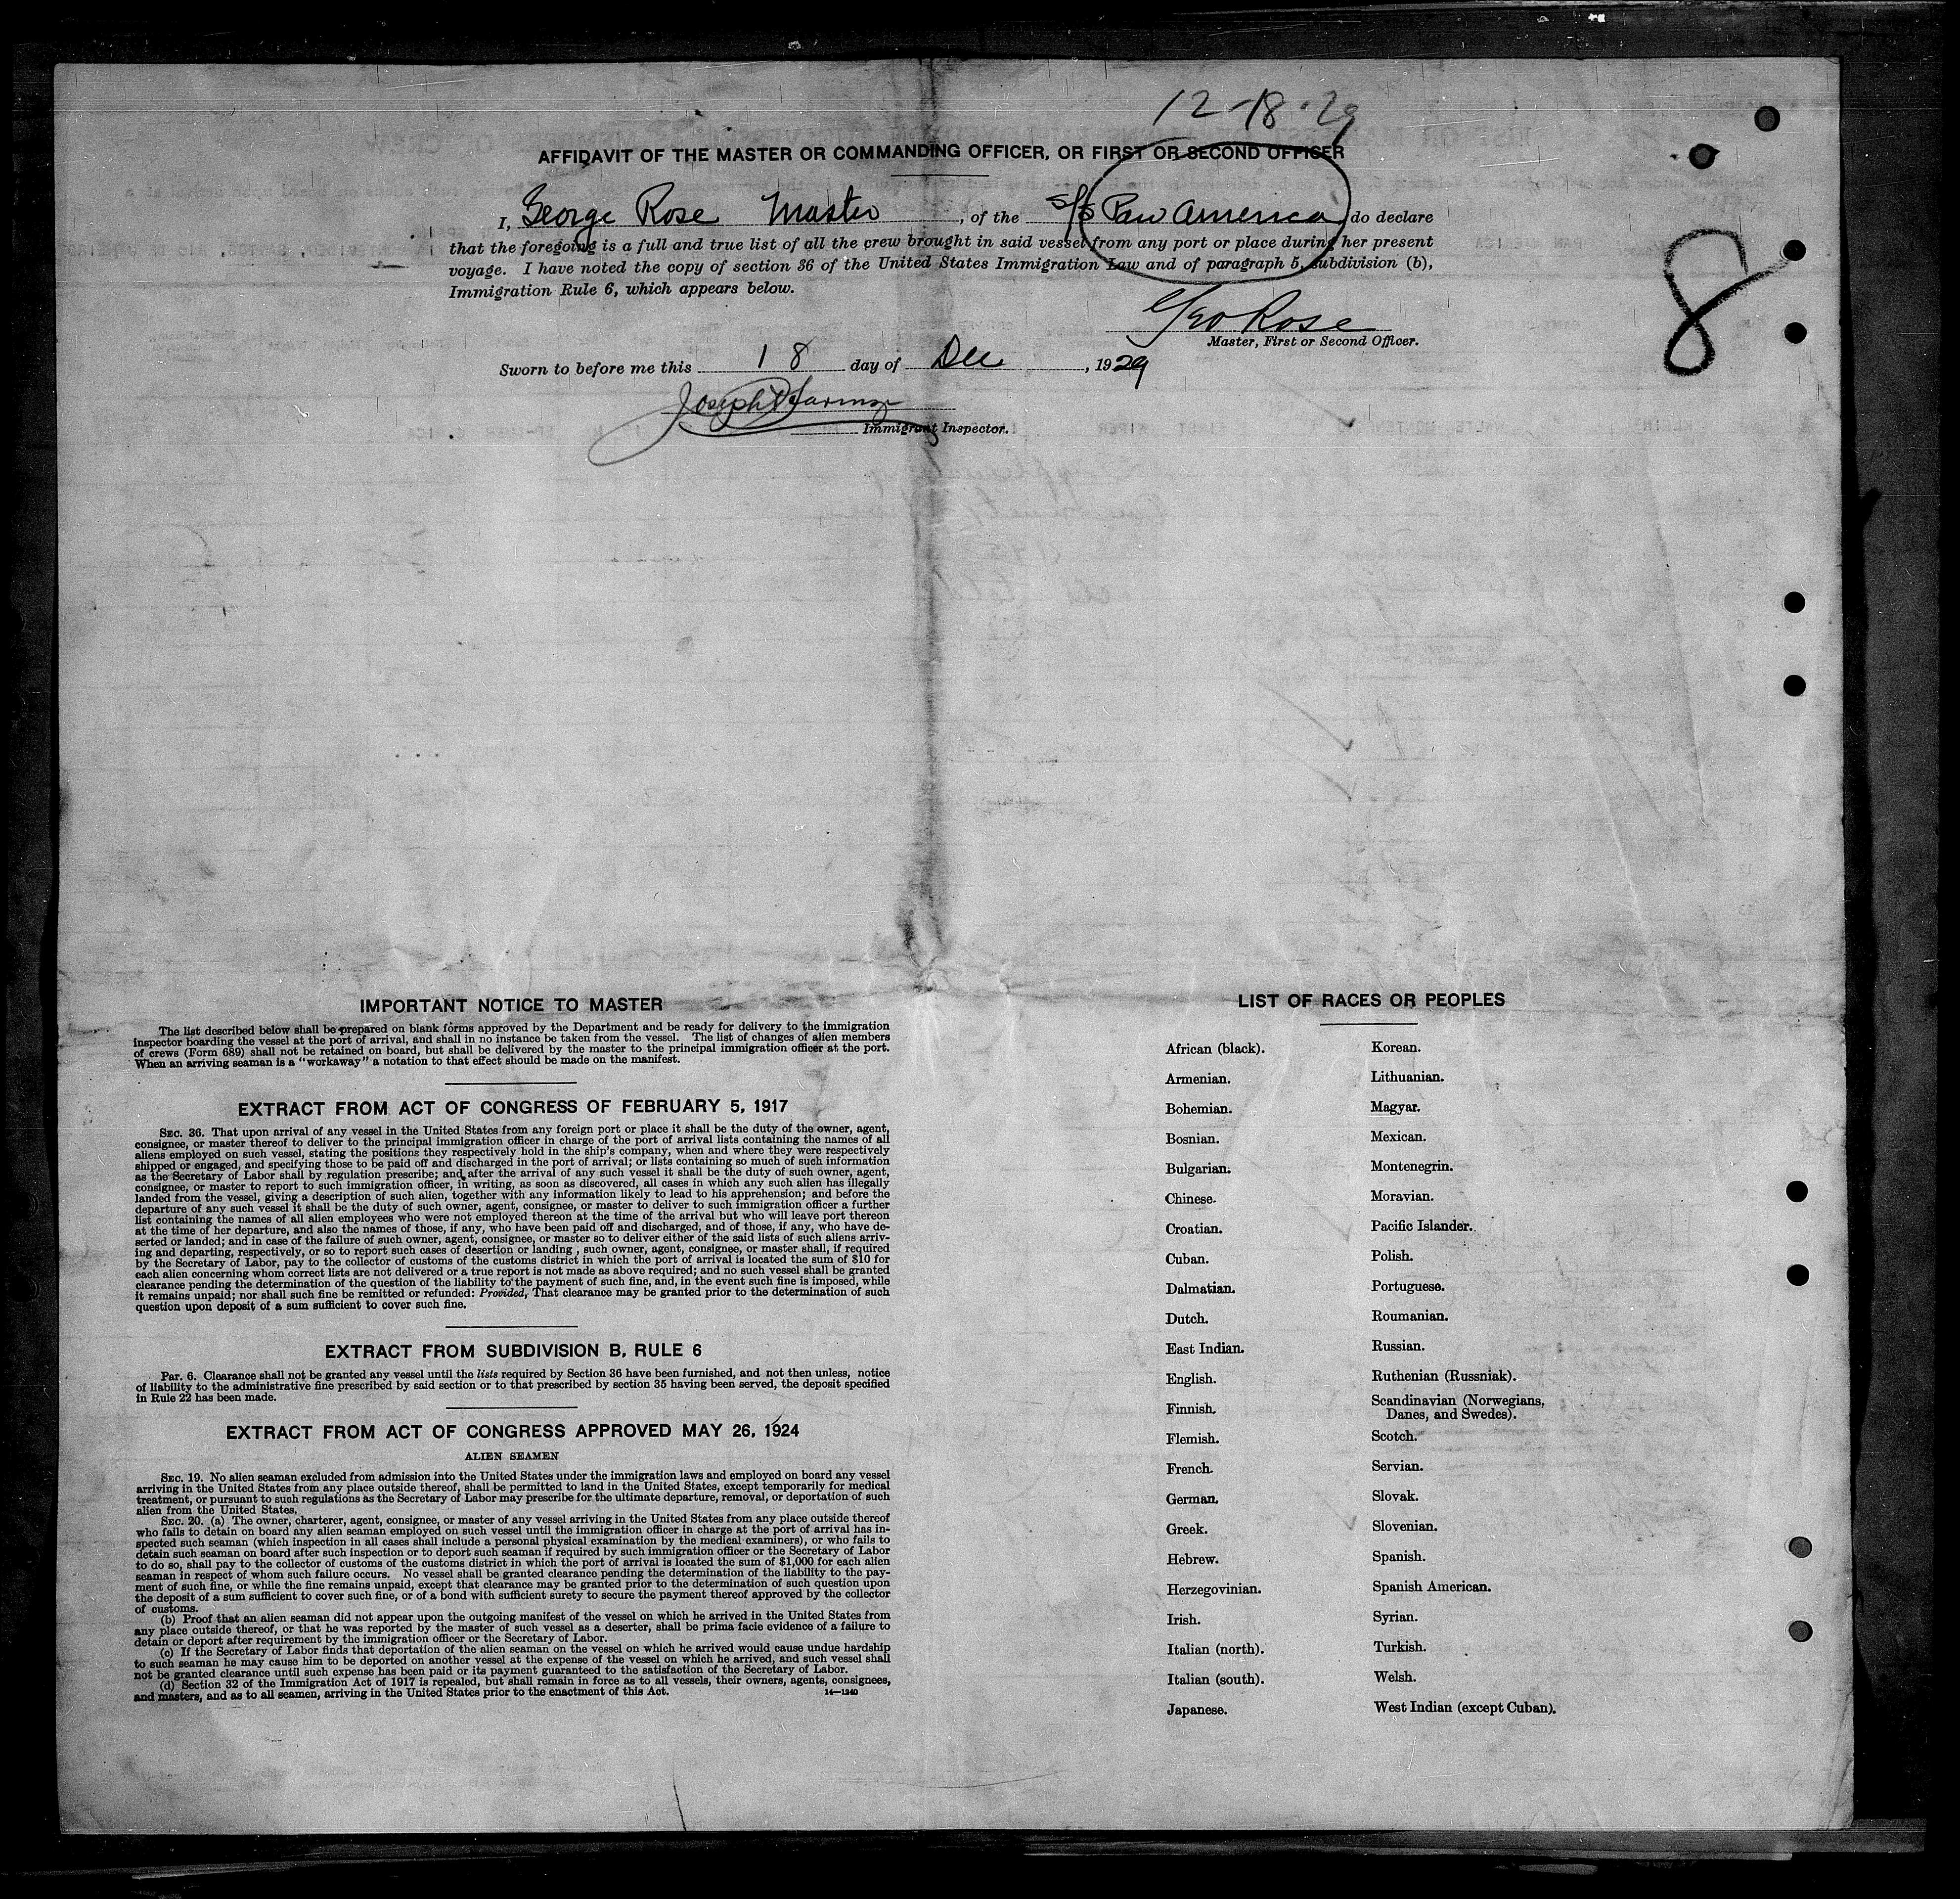 12-18-29
AFFIDAVIT OF THE MASTER OR COMMANDING OFFICER, OR FIRST OR SECOND OFFICER
I, George Rose Master, of the S/S Pan America, do declare
that the foregoing is a full and true list of all the crew brought in said vessel from any port or place during her present
voyage. I have noted the copy of section 36 of the United States Immigration Law and of paragraph 5, subdivision (b),
Immigration Rule 6, which appears below.
8
Geo Rose
Master, First or Second Officer.
Sworn to before me this 18 day of Dec, 1929
Joseph
Immigrant Inspector.
IMPORTANT NOTICE TO MASTER
The list described below shall be prepared on blank forms approved by the Department and be ready for delivery to the immigration
inspector boarding the vessel at the port of arrival, and shall in no instance be taken from the vessel. The list of changes of alien members
of crews (Form 689) shall not be retained on board, but shall be delivered by the master to the principal immigration officer at the port.
When an arriving seaman is a "workaway" a notation to that effect should be made on the manifest.
EXTRACT FROM ACT OF CONGRESS OF FEBRUARY 5, 1917
SEC. 36. That upon arrival of any vessel in the United States from any foreign port or place it shall be the duty of the owner, agent,
consignee, or master thereof to deliver to the principal immigration officer in charge of the port of arrival lists containing the names of all
aliens employed on such vessel, stating the positions they respectively hold in the ship's company, when and where they were respectively
shipped or engaged, and specifying those to be paid off and discharged in the port of arrival; or lists containing so much of such information
as the Secretary of Labor shall by regulation prescribe; and after the arrival of any such vessel it shall be the duty of such owner, agent,
consignee, or master to report to such immigration officer, in writing, as soon as discovered, all cases in which any such alien has illegally
landed from the vessel, giving a description of such alien, together with any information likely to lead to his apprehension; and before the
departure of any such vessel it shall be the duty of such owner, agent, consignee, or master to deliver to such immigration officer a further
list containing the names of all alien employees who were not employed thereon at the time of the arrival but who will leave port thereon
at the time of her departure, and also the names of those, if any, who have been paid off and discharged, and of those, if any, who have de-
serted or landed; and in case of the failure of such owner, agent, consignee, or master so to deliver either of the said lists of such aliens arriv-
ing and departing, respectively, or so to report such cases of desertion or landing, such owner, agent, consignee, or master shall, if required
by the Secretary of Labor, pay to the collector of customs of the customs district in which the port of arrival is located the sum of $10 for
each alien concerning whom correct lists are not delivered or a true report is not made as above required; and no such vessel shall be granted
clearance pending the determination of the question of the liability to the payment of such fine, and, in the event such fine is imposed, while
it remains unpaid; nor shall such fine be remitted or refunded: Provided, That clearance may be granted prior to the determination of such
question upon deposit of a sum sufficient to cover such fine.
EXTRACT FROM SUBDIVISION B, RULE 6
Par. 6. Clearance shall not be granted any vessel until the lists required by Section 36 have been furnished, and not then unless, notice
of liability to the administrative fine prescribed by said section or to that prescribed by section 35 having been served, the deposit specified
in Rule 22 has been made.
EXTRACT FROM ACT OF CONGRESS APPROVED MAY 26, 1924
ALIEN SEAMEN
SEC. 19. No alien seaman excluded from admission into the United States under the immigration laws and employed on board any vessel
arriving in the United States from any place outside thereof, shall be permitted to land in the United States, except temporarily for medical
treatment, or pursuant to such regulations as the Secretary of Labor may prescribe for the ultimate departure, removal, or deportation of such
alien from the United States.
SEC. 20. (a) The owner, charterer, agent, consignee, or master of any vessel arriving in the United States from any place outside thereof
who fails to detain on board any alien seaman employed on such vessel until the immigration officer in charge at the port of arrival has in-
spected such seaman (which inspection in all cases shall include a personal physical examination by the medical examiners), or who fails to
detain such seaman on board after such inspection or to deport such seaman if required by such immigration officer or the Secretary of Labor
to do so, shall pay to the collector of customs of the customs district in which the port of arrival is located the sum of $1,000 for each alien
seaman in respect of whom such failure occurs. No vessel shall be granted clearance pending the determination of the liability to the pay-
ment of such fine, or while the fine remains unpaid, except that clearance may be granted prior to the determination of such question upon
the deposit of a sum sufficient to cover such fine, or of a bond with sufficient surety to secure the payment thereof approved by the collector
of customs.
(b) Proof that an alien seaman did not appear upon the outgoing manifest of the vessel on which he arrived in the United States from
any place outside thereof, or that he was reported by the master of such vessel as a deserter, shall be prima facie evidence of a failure to
detain or deport after requirement by the immigration officer or the Secretary of Labor.
(c) If the Secretary of Labor finds that deportation of the alien seaman on the vessel on which he arrived would cause undue hardship
to such seaman he may cause him to be deported on another vessel at the expense of the vessel on which he arrived, and such vessel shall
not be granted clearance until such expense has been paid or its payment guaranteed to the satisfaction of the Secretary of Labor.
(d) Section 32 of the Immigration Act of 1917 is repealed, but shall remain in force as to all vessels, their owners, agents, consignees,
and masters, and as to all seamen, arriving in the United States prior to the enactment of this Act.
14—1240
LIST OF RACES OR PEOPLES
African (black).
Armenian.
Bohemian.
Bosnian.
Bulgarian.
Chinese.
Croatian.
Cuban.
Dalmatian.
Dutch.
East Indian.
English.
Finnish.
Flemish.
French.
German.
Greek.
Hebrew.
Herzegovinian.
Irish.
Italian (north).
Italian (south).
Japanese.
Korean.
Lithuanian.
Magyar.
Mexican.
Montenegrin.
Moravian.
Pacific Islander.
Polish.
Portuguese.
Roumanian.
Russian.
Ruthenian (Russniak).
Scandinavian (Norwegians,
Danes, and Swedes).
Scotch.
Servian.
Slovak.
Slovenian.
Spanish.
Spanish American.
Syrian.
Turkish.
Welsh.
West Indian (except Cuban).